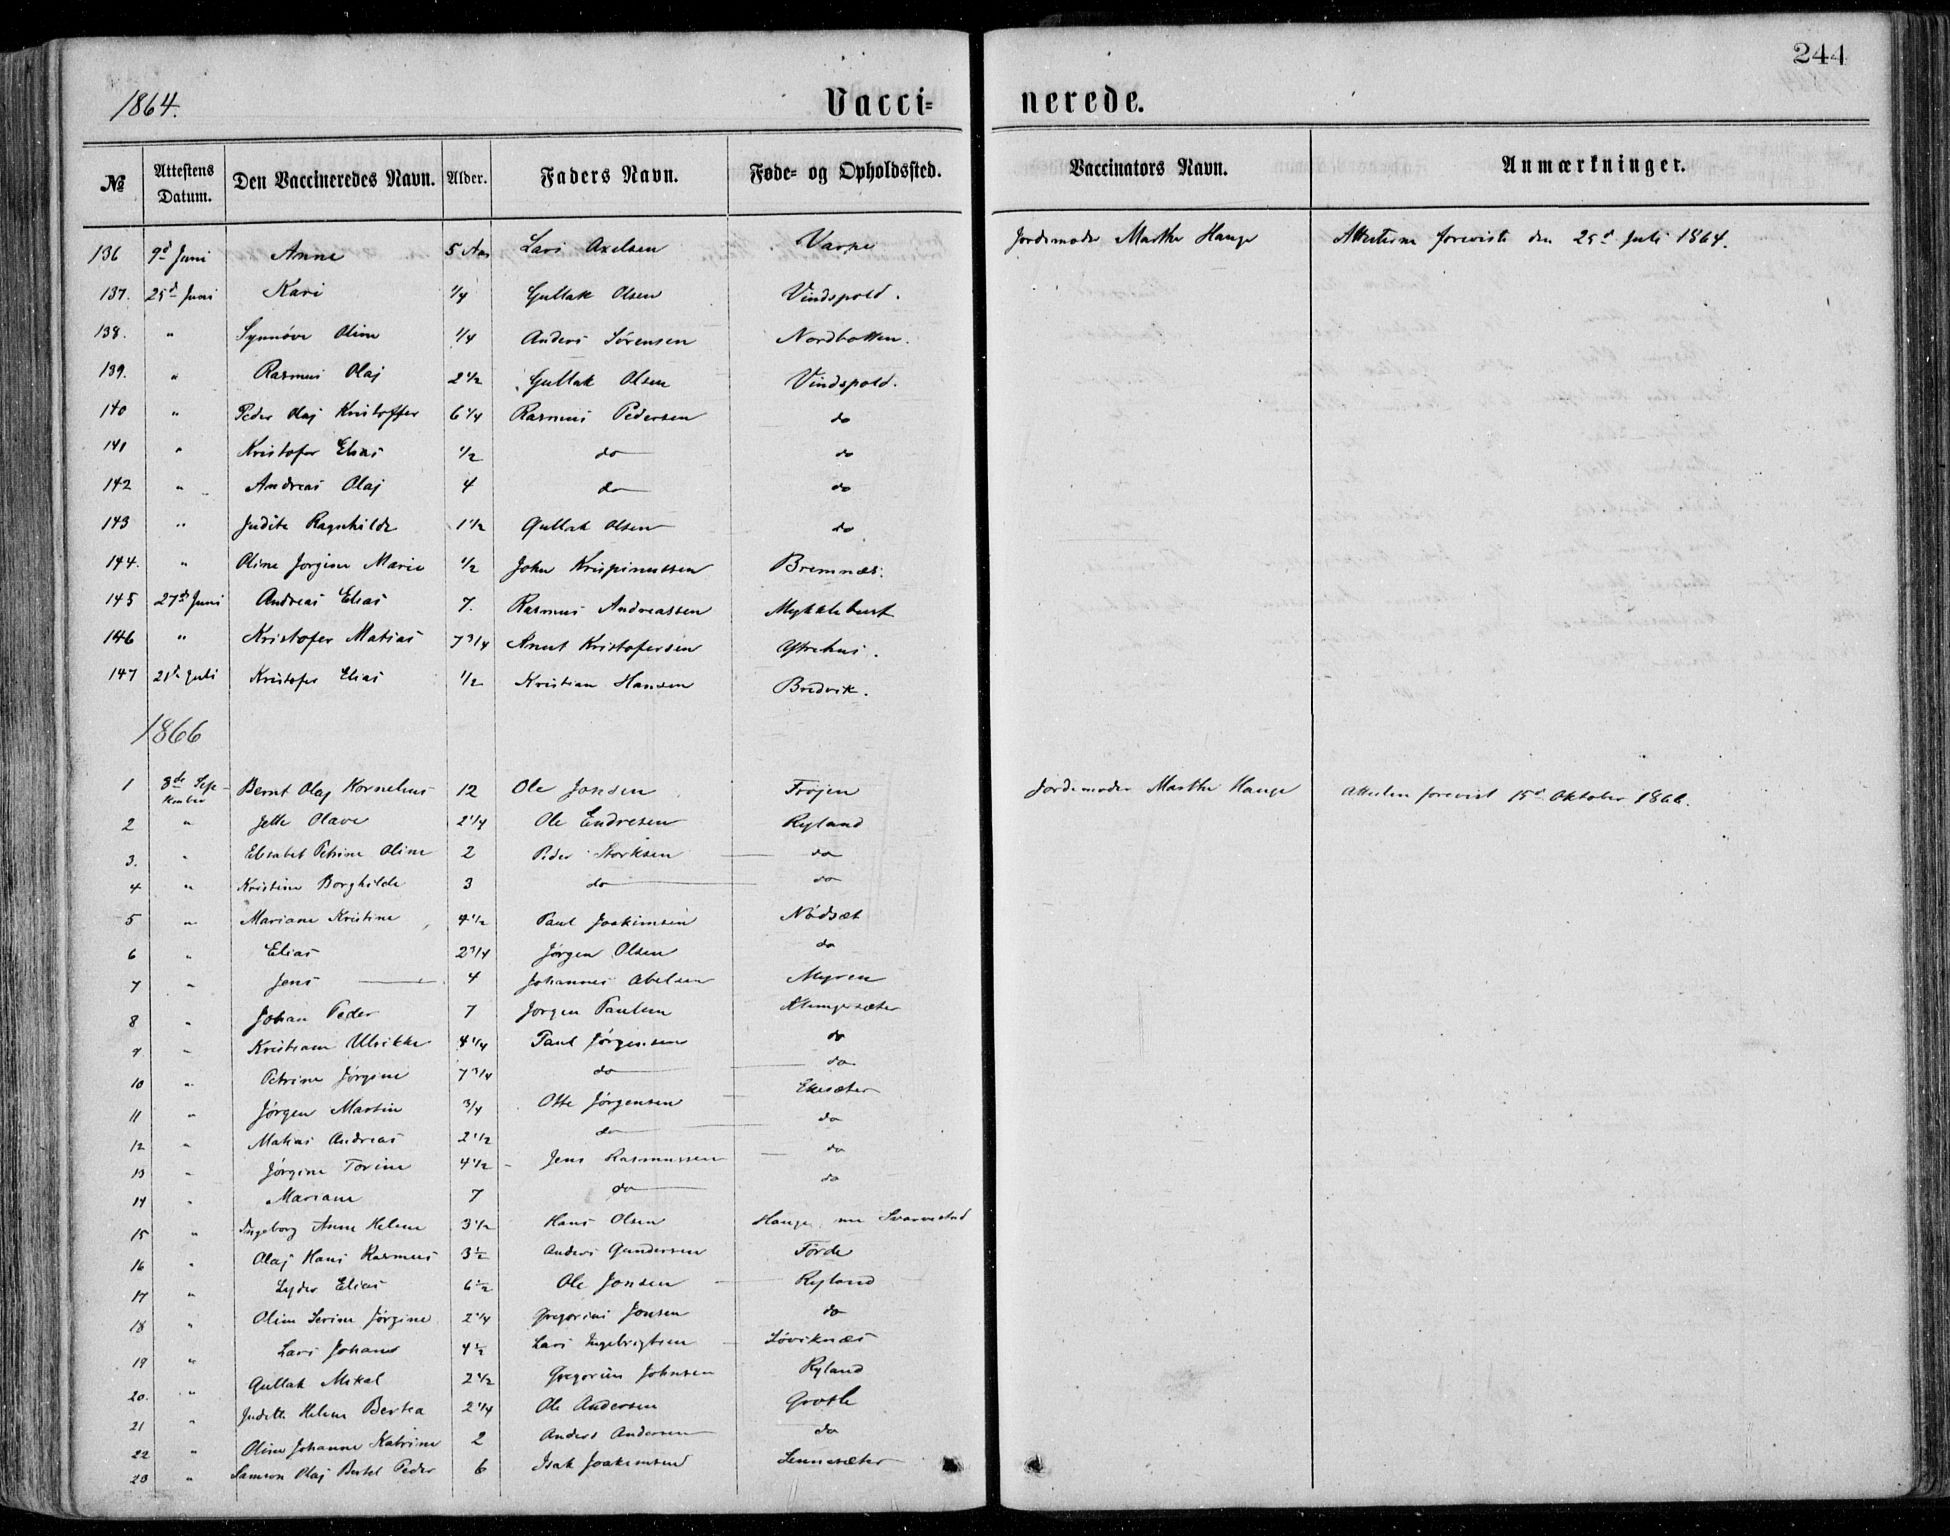 244
1864. Vacci= nerede.
№ Attestens Datum. Den Vaccineredes Navn. Alder. Faders Navn. Føde= og Opholdssted. Vaccinators Navn. Anmærkninger.
136 9d Juni Anne 5 Lars Axelsen Varpe Jordemoder Marthe Hauge Attesterne foreviste den 25d Juli 1864.
137. 25d Juni Kari 1/4 Gullak Olsen Vindspold.
138. " Synnøve Oline 1/4 Anders Sørensen Nordbotten.
139. " Rasmus Olaj 2 1/2 Gullak Olsen Vindspold.
140 " Peder Olaj Kristoffer 6 1/4 Rasmus Pedersen do
141 " Kristofer Elias 1/2 do do
142 " Andreas Olaj 4 do do
143 " Judite Ragnhilde 1 1/2 Gullak Olsen do
144. " Oline Jørgine Marie 1/2 John Krispinussen Bremnæs.
145 27d Juni Andreas Elias 7. Rasmus Andreassen Myklebust
146 " Kristofer Matias 7 3/4 Knut Kristofersen
147 21d Juli Kristofer Elias 1/2 Kristian Hansen Bredvik.
1866
1 3de September Bernt Olaj Kornelius 12 Ole Jonsen Frøjen Jordemoder Marthe Hauge Attesten forevist 15d Oktober 1866.
2 " Jette Olave 2 1/4 Ole Endresen Ryland
3. " Elisabet Petrine Oline 2 Peder Storksen do
4 " Kristine Borghilde 3 do do
5 " Mariane Kristine 4 1/2 Paul Joakimsen Nødsæt
6 " Elias 2 3/4 Jørgen Olsen do
7 " Jens 4 Johannes Abelsen Myren
8 " Johan Peder 7 Jørgen Paulsen
9 " Kristiane Ulrikke 4 1/4 Paul Jørgensen do
10 " Petrine Jørgine 7 3/4 do do
11 " Jørgen Martin 3/4 Otte Jørgensen Ekesæter
12 " Matias Andreas 2 1/2 do do
13 " Jørgine Torine 4 1/2 Jens Rasmussen do
14 " Mariane 7 do do
15 " Ingeborg Anne Helene 3 1/2 Hans Olsen Hauge
16 " Olaj Hans Rasmus 3 1/2 Anders Gundersen Førde
17 " Lyder Elias 6 1/2 Ole Jonsen Ryland
18 " Oline Serine Jørgine 2 1/4 Gregorius Jonsen do
19 " Lars Johan 4 1/2 Lars Ingebrigtsen Løviknæs
20. " Gullak Mikal 2 1/2 Gregorius Johnsen Ryland
21 " Judith Helene Bertea 2 1/4 Ole Andersen Grotle
22 " Oline Johanne Katrine 2 Anders Andersen do
23 " Samson Olaj Bertel Peder 6 Isak Joakimsen Lennesæter